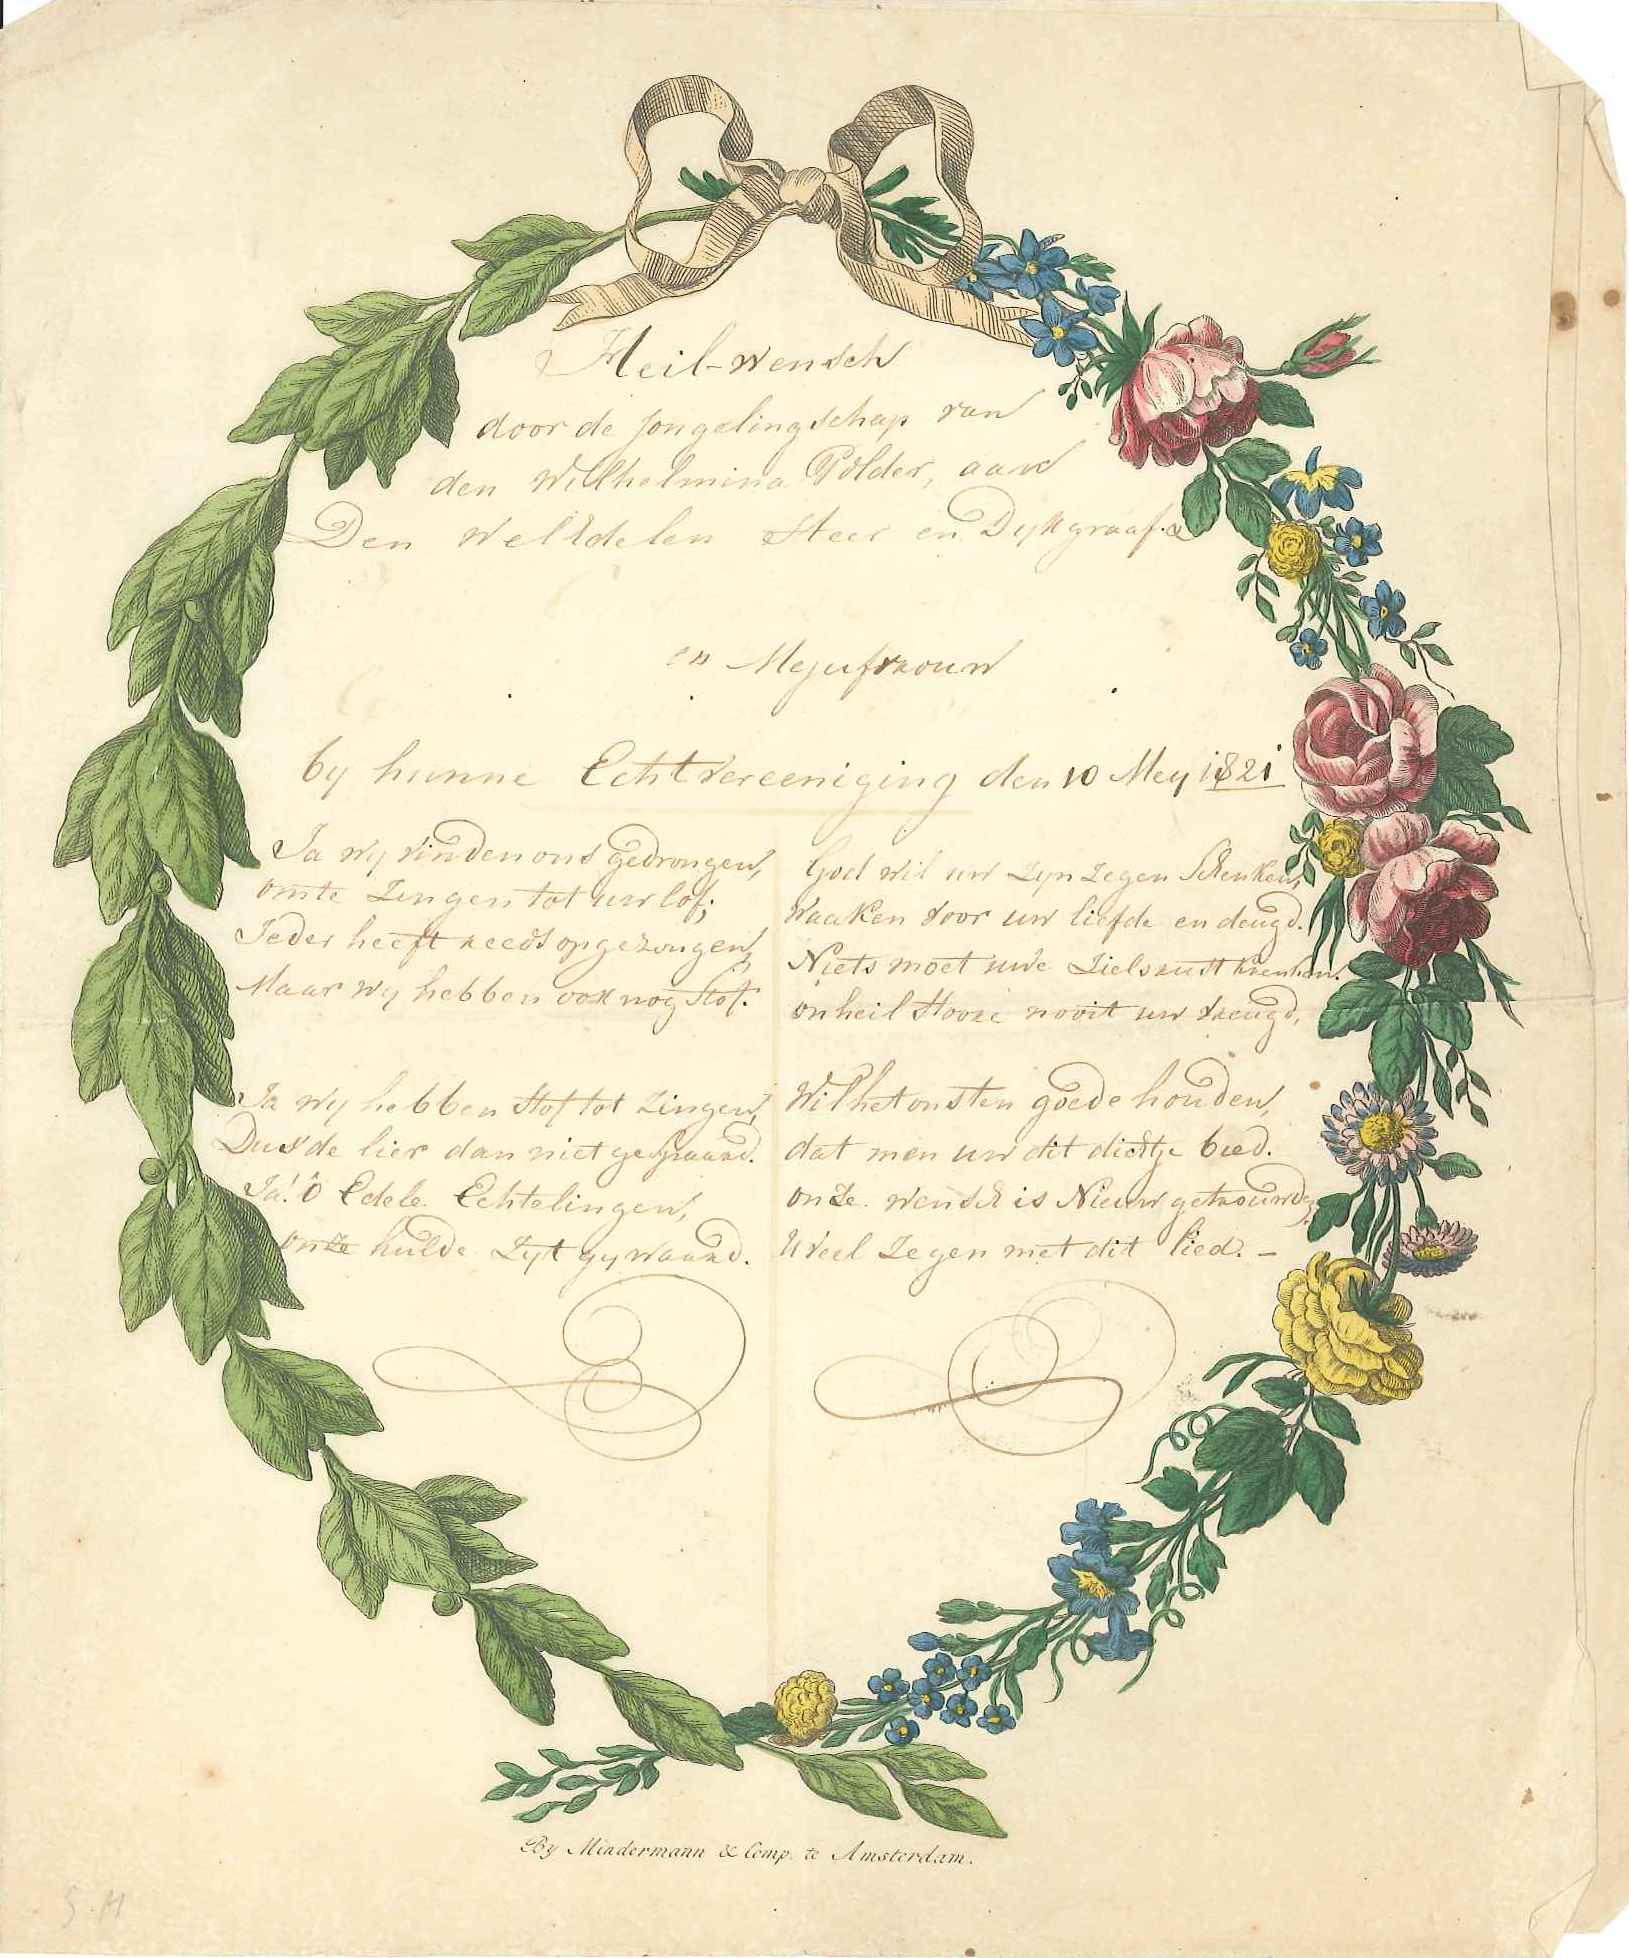 Heil-wensch
door de Jongelingschap van
den Wilhelmina Polder, aan
Den WelEdelen Heer en Dijkgraaf
en Mejufvrouw
by hunne Echtvereeniging den 10 Mey 1821
Ja wy vinden ons gedrongen,
om te Zingen tot uw lof;
Ieder heeft reeds opgezongen,
Maar wy hebben ook nog Stof.
Ja wy hebben Stof tot Zingen,
Dus de lier dan niet gespaard.
Ja! ô Edele Echtelingen,
onze hulde Zyt gy waard.
God wil uw Zyn Zegen Schenken,
Waaken voor uw liefde en deugd.
Niets moet uwe Zielsrust krenken.
onheil Stoore nooit uw vreugd,
Wil het ons ten goede houden,
dat men uw dit dichtje bied.
onze wensch is Nieuw getrouwde,
Uveel Zegen met dit lied. -
By Mindermann & Comp. te Amsterdam.